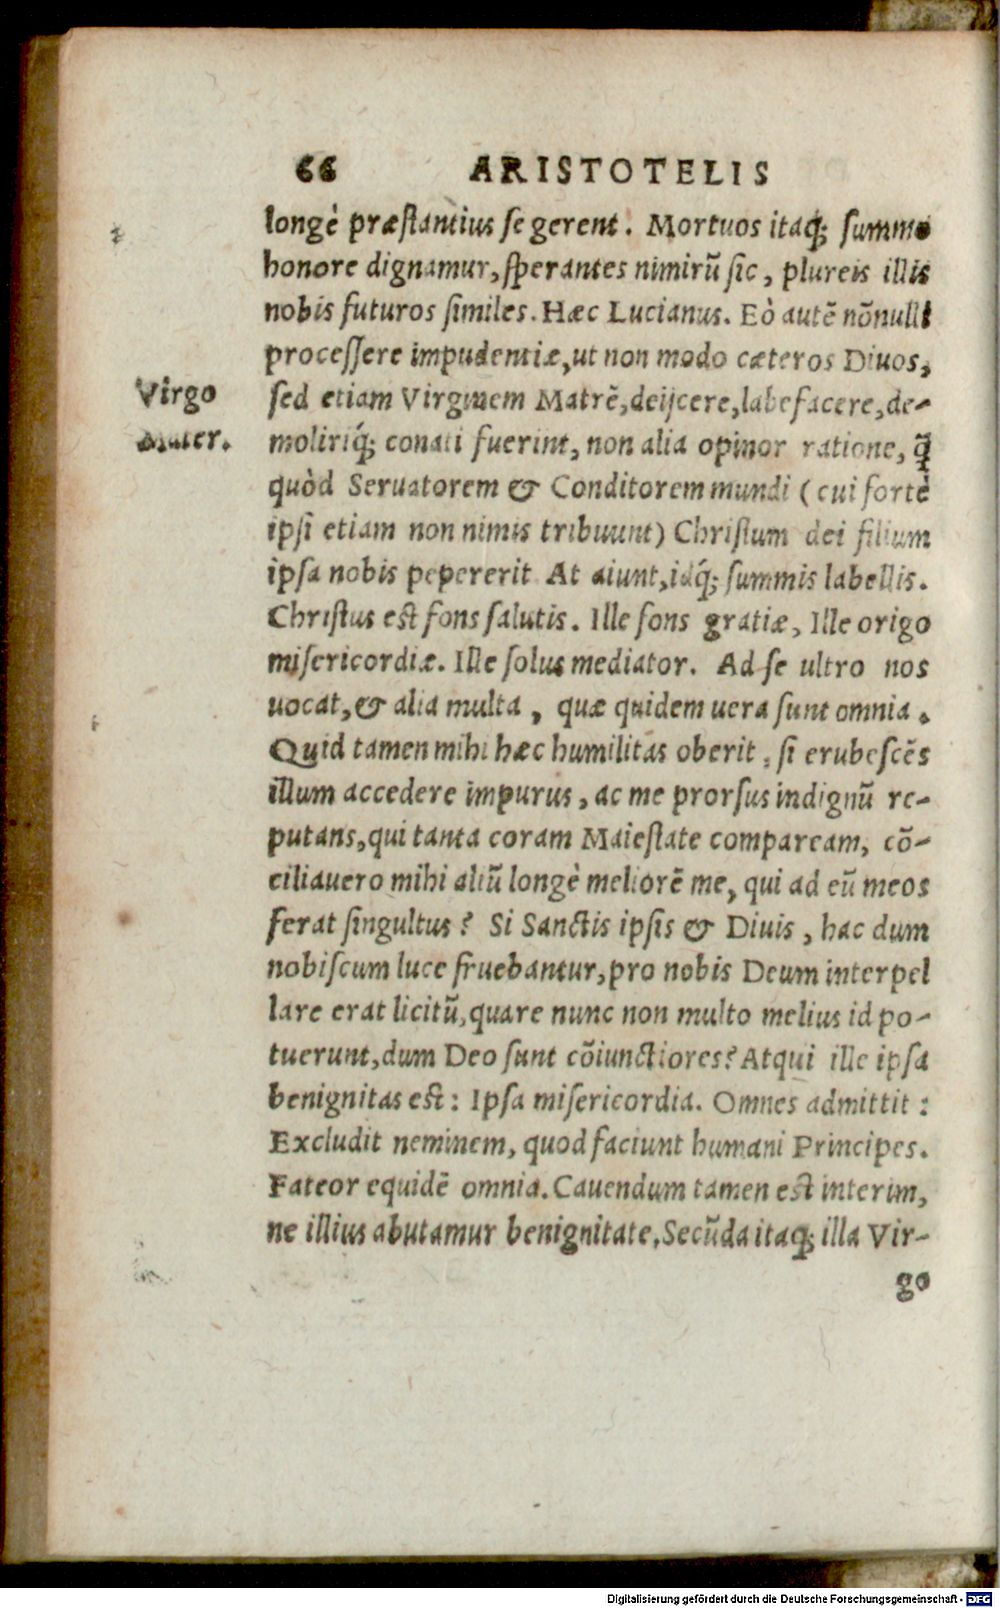 66 ARISTOTELIS
longè præſtantius ſe gerent. Mortuos itaq; ſummo
honore dignamur, ſperantes nimirũ ſic, plureis illis
nobis futuros ſimiles. Hæc Lucianus. Eò autẽ nõnulli
proceſſere impudentiæ, ut non modo cæteros Diuos,
Virgo
Mater.
ſed etiam Virginem Matrẽ, deijcere, labefacere, de-
moliriq́; conati fuerint, non alia opinor ratione, q̃
quòd Seruatorem & Conditorem mundi (cui fortè
ipſi etiam non nimis tribuunt) Chriſtum dei filium
ipſa nobis pepererit At aiunt, idq́; ſummis labellis.
Chriſtus eſt fons ſalutis. Ille fons gratiæ, Ille origo
miſericordiæ. Ille ſolus mediator. Ad ſe ultro nos
uocat, & alia multa, quæ quidem uera ſunt omnia.
Quid tamen mihi hæc humilitas oberit, ſi erubeſcẽs
illum accedere impurus, ac me prorſus indignũ re-
putans, qui tanta coram Maieſtate compaream, cõ-
ciliauero mihi aliũ longè meliorẽ me, qui ad eũ meos
ferat ſingultus? Si Sanctis ipſis & Diuis, hac dum
nobiſcum luce fruebantur, pro nobis Deum interpel
lare erat licitũ, quare nunc non multo melius id po-
tuerunt, dum Deo ſunt cõiunctiores? Atqui ille ipſa
benignitas eſt: Ipſa miſericordia. Omnes admittit:
Excludit neminem, quod faciunt humani Principes.
Fateor equidẽ omnia. Cauendum tamen eſt interim,
ne illius abutamur benignitate, Secũda itaq; illa Vir-
go
Digitalisierung gefördert durch die Deutsche Forschungsgemeinschaft - DFG